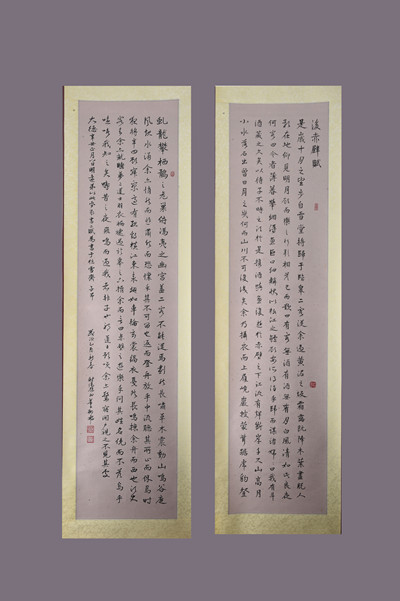 後赤壁賦
是歲十月之望步自雪堂將歸于臨皋二客從余過黃泥之坂霜露既降木葉盡脫人
影在地仰見明月顧而樂之行歌相答已而歎曰有客無酒有酒無肴月白風清如此良夜
何客曰今者薄暮舉網得魚巨口細鱗狀似松江之鱸顧安所得酒乎歸而謀諸婦婦曰我有斗
酒藏之久矣以待子不時之須於是攜酒與魚復遊於赤壁之下江流有聲斷岸千尺山高月
小水落石出曾日月之幾何而山川不可復識矣余乃攝衣而上履巉巖披蒙茸踞虎豹登
虯龍攀栖鶻之危巢俯馮夷之幽宮蓋二客不能從焉劃然長嘯草木震動山鳴谷應
風起水涌余亦悄然而悲肅然而恐凜乎其不可留也返而登舟放乎中流聽其所止而休焉時
夜將半四顧寂寥適有孤鶴橫江東來翅如車輪玄裳縞衣戛然長鳴掠余舟而西也須臾
客去余亦就睡夢一道士羽衣蹁躚過臨皋之下揖余而言曰赤壁之遊樂乎問其姓名俛而不答嗚乎
噫嘻我知之矣疇昔之夜飛鳴而過我者非子也耶道士顧笑余亦驚寤開戶視之不見其處
大德辛丑正月八日 為書于松雪齋 子昂